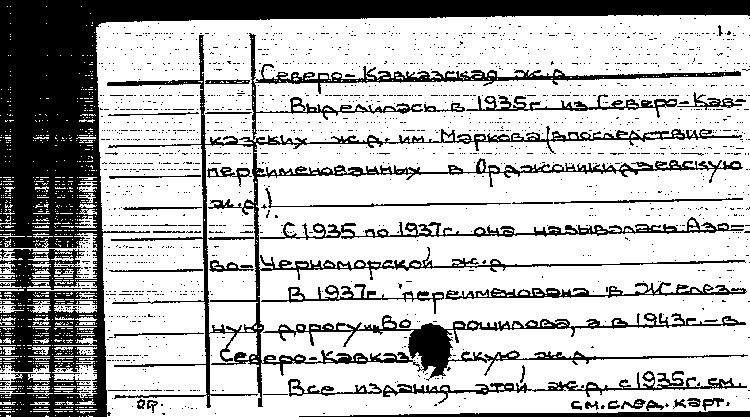 1.
Северо-Кавказская ж.д.
Выделилась в 1935г. из Северо-Кав-
казских ж.д. им. Маркова (впоследствие
переименованных в Орджоникидзевскую
ж.д.)
С 1935 по 1937г. она называлась Азо-
во-Черноморской ж.д.
В 1937г. переименована в Желез-
ную дорогу им. Во рошилова, а в 1943г. – в
Северо-Кавказ скую ж.д.
Все издания этой ж.д. с 1935г. см.
см. след. карт.